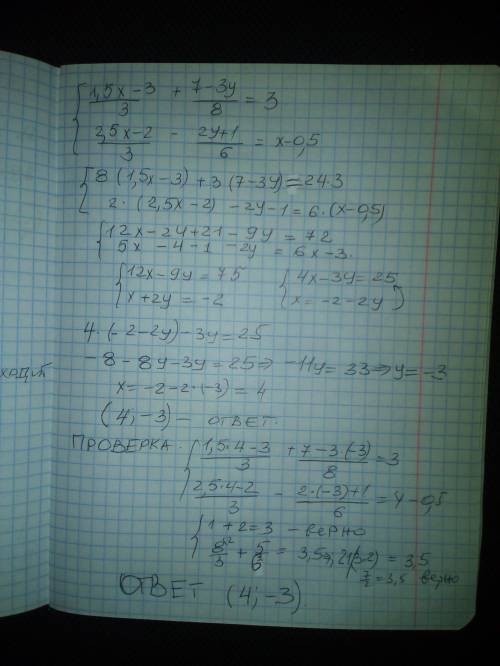 { (1,5x-3)/3 + (7-3y)/8 = 3
(2,5x-2)/3 - (2y+1)/6 = x-0,5
{ 8(1,5x-3)+3(7-3y)=24·3
2·(2,5x-2)-2y-1=6·(x-0,5)
{ 12x-24+21-9y=72
5x-4-1-2y=6x-3.
{ 12x-9y=75 { 4x-3y=25
x+2y=-2 x=-2-2y
4·(-2-2y)-3y=25
-8-8y-3y=25⇒ -11y=33⇒y=-3
x=-2-2·(-3)=4
(4;-3)- ОТВЕТ.
ПРОВЕРКА. { (1,5·4-3)/3 + (7-3·(-3))/8 = 3
(2,5·4-2)/3 - (2·(-3)+1)/6 = 4-0,5
{ 1+2=3 - верно
8/3 + 5/6 = 3,5 = 3,5
7/2=3,5 верно
ОТВЕТ (4;-3).